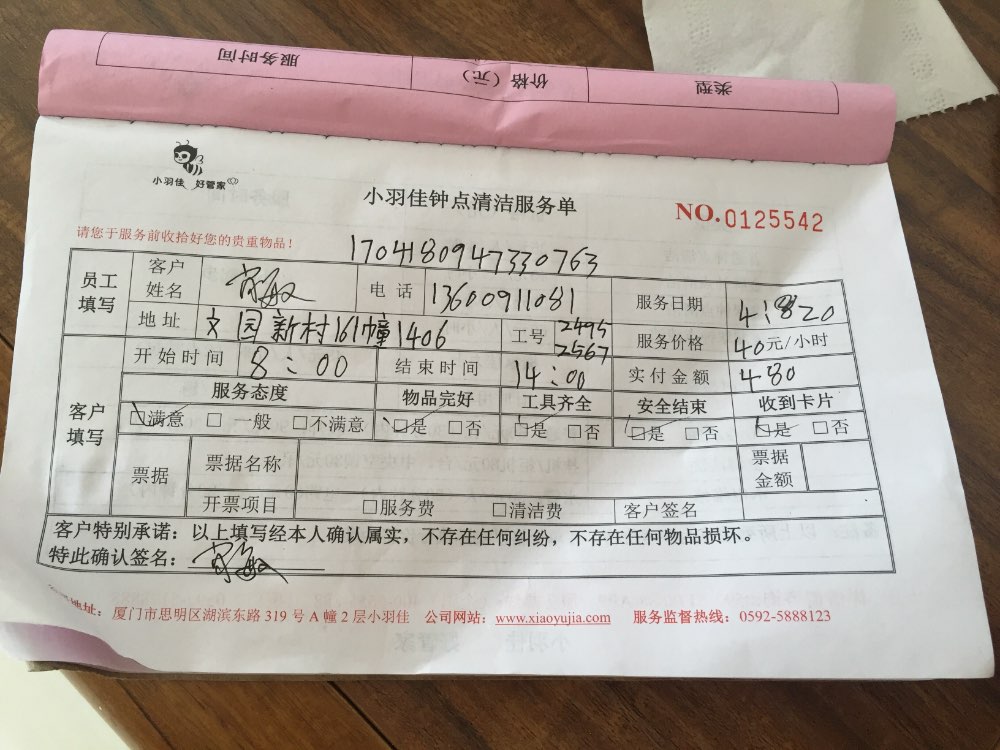 服务时间 价格（元） 类型
小羽佳 好管家
小羽佳钟点清洁服务单
NO.0125542
请您于服务前收拾好您的贵重物品！
1704180947330763
员工填写 客户姓名 电话 13600911081 服务日期 4.1820
地址 文园新村161幢1406 工号 2495 2567 服务价格 40元/小时
客户填写 开始时间 8:00 结束时间 14:00 实付金额 480
服务态度 物品完好 工具齐全 安全结束 收到卡片
☑满意 □一般 □不满意 ☑是 □否 ☑是 □否 ☑是 □否 ☑是 □否
票据 票据名称 票据金额
开票项目 □服务费 □清洁费 客户签名
客户特别承诺：以上填写经本人确认属实，不存在任何纠纷，不存在任何物品损坏。
特此确认签名：
地址：厦门市思明区湖滨东路 319 号 A 幢 2 层小羽佳 公司网站：www.xiaoyujia.com 服务监督热线：0592-5888123